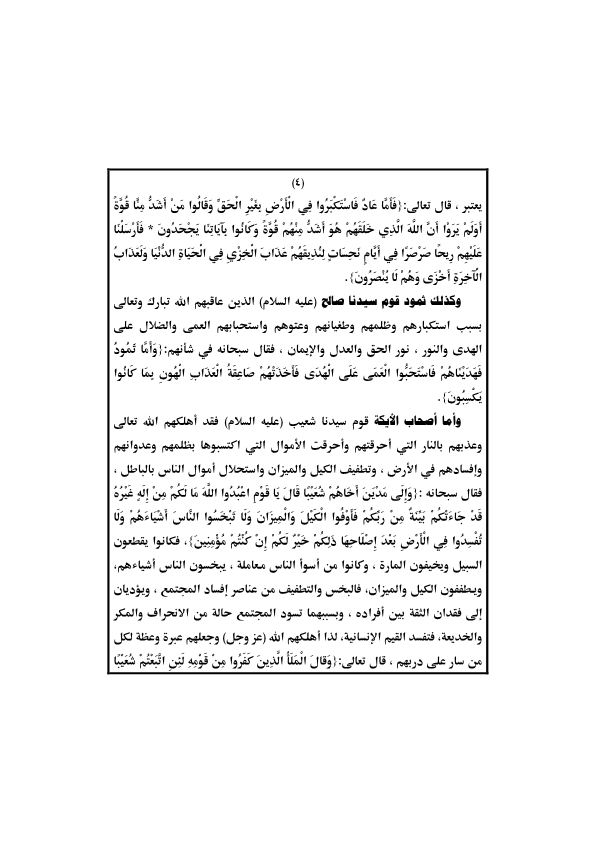 (٤)
يعتبر ، قال تعالى:{فَأَمَّا عَادٌ فَاسْتَكْبَرُوا فِي الْأَرْضِ بِغَيْرِ الْحَقِّ وَقَالُوا مَنْ أَشَدُّ مِنَّا قُوَّةً
أَوَلَمْ يَرَوْا أَنَّ اللَّهَ الَّذِي خَلَقَهُمْ هُوَ أَشَدُّ مِنْهُمْ قُوَّةً وَكَانُوا بِآيَاتِنَا يَجْحَدُونَ * فَأَرْسَلْنَا
عَلَيْهِمْ رِيحًا صَرْصَرًا فِي أَيَّامٍ نَحِسَاتٍ لِنُذِيقَهُمْ عَذَابَ الْخِزْيِ فِي الْحَيَاةِ الدُّنْيَا وَلَعَذَابُ
الْآخِرَةِ أَخْزَى وَهُمْ لَا يُنْصَرُونَ}.
وكذلك ثمود قوم سيدنا صالح (عليه السلام) الذين عاقبهم الله تبارك وتعالى
بسبب استكبارهم وظلمهم وطغيانهم وعتوهم واستحبابهم العمى والضلال على
الهدى والنور ، نور الحق والعدل والإيمان ، فقال سبحانه في شأنهم:{وَأَمَّا ثَمُودُ
فَهَدَيْنَاهُمْ فَاسْتَحَبُّوا الْعَمَى عَلَى الْهُدَى فَأَخَذَتْهُمْ صَاعِقَةُ الْعَذَابِ الْهُونِ بِمَا كَانُوا
يَكْسِبُونَ}.
وأما أصحاب الأيكة قوم سيدنا شعيب (عليه السلام) فقد أهلكهم الله تعالى
وعذبهم بالنار التي أحرقتهم وأحرقت الأموال التي اكتسبوها بظلمهم وعدوانهم
وإفسادهم في الأرض ، وتطفيف الكيل والميزان واستحلال أموال الناس بالباطل ،
فقال سبحانه :{وَإِلَى مَدْيَنَ أَخَاهُمْ شُعَيْبًا قَالَ يَا قَوْمِ اعْبُدُوا اللَّهَ مَا لَكُمْ مِنْ إِلَهٍ غَيْرُهُ
قَدْ جَاءَتْكُمْ بَيِّنَةٌ مِنْ رَبِّكُمْ فَأَوْفُوا الْكَيْلَ وَالْمِيزَانَ وَلَا تَبْخَسُوا النَّاسَ أَشْيَاءَهُمْ وَلَا
تُفْسِدُوا فِي الْأَرْضِ بَعْدَ إِصْلَاحِهَا ذَلِكُمْ خَيْرٌ لَكُمْ إِنْ كُنْتُمْ مُؤْمِنِينَ}، فكانوا يقطعون
السبيل ويخيفون المارة ، وكانوا من أسوأ الناس معاملة ، يبخسون الناس أشياءهم،
ويطففون الكيل والميزان، فالبخس والتطفيف من عناصر إفساد المجتمع ، ويؤديان
إلى فقدان الثقة بين أفراده ، وبسببهما تسود المجتمع حالة من الانحراف والمكر
والخديعة، فتفسد القيم الإنسانية، لذا أهلكهم الله (عز وجل) وجعلهم عبرة وعظة لكل
من سار على دربهم ، قال تعالى:{وَقَالَ الْمَلَأُ الَّذِينَ كَفَرُوا مِنْ قَوْمِهِ لَئِنِ اتَّبَعْتُمْ شُعَيْبًا